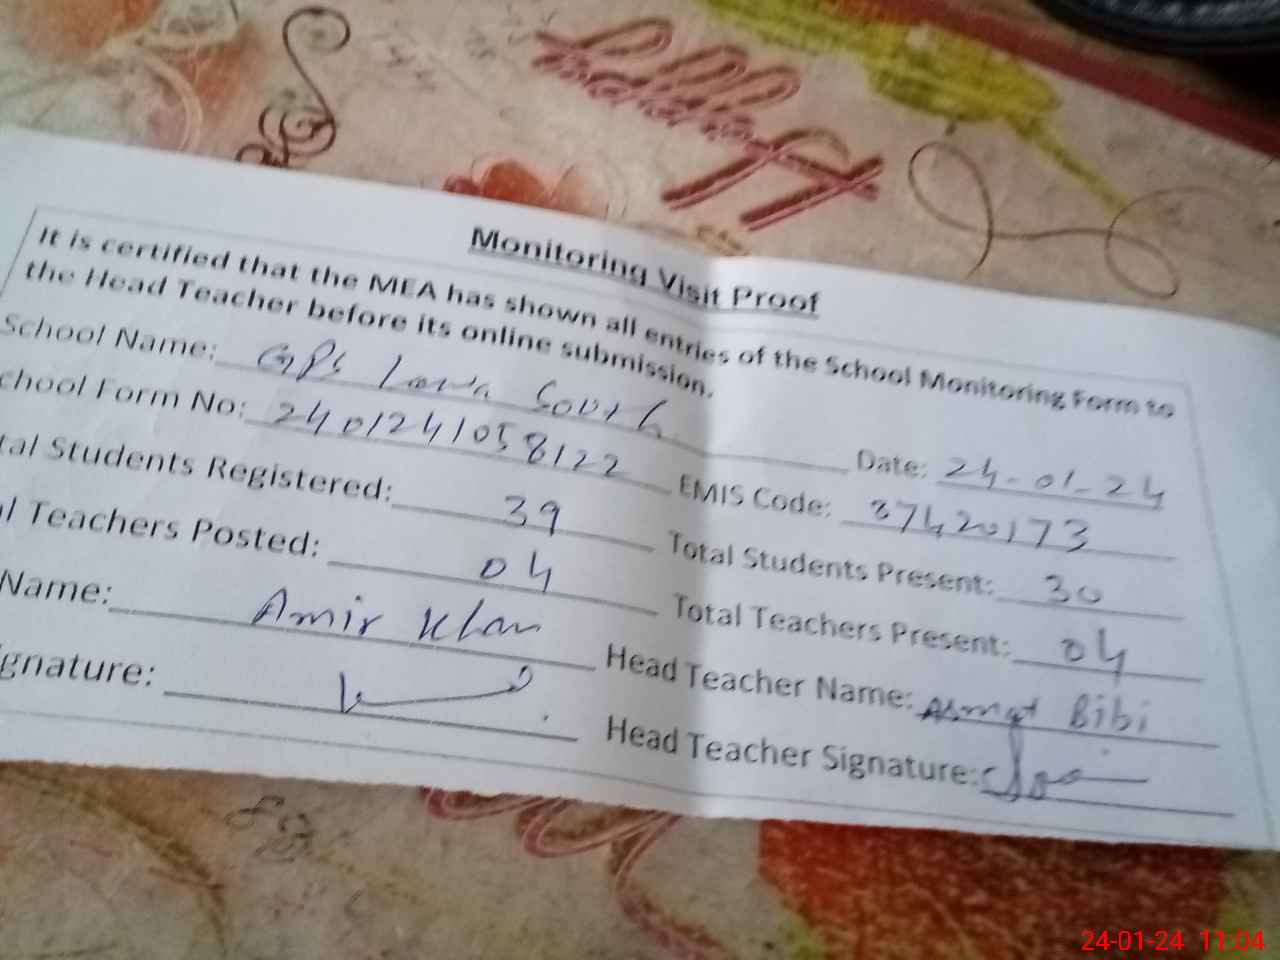 Monitoring Visit Proof
It is certified that the MEA has shown all entries of the School Monitoring Form to
the Head Teacher before its online submission.
School Name: GPS Lawa South Date: 24-01-24
chool Form No: 2401241058122 EMIS Code: 87420173
tal Students Registered: 39 Total Students Present: 30
l Teachers Posted: 04 Total Teachers Present: 04
Name: Amir Khan Head Teacher Name: Asmat Bibi
ignature: Head Teacher Signature:
24-01-24 11:04